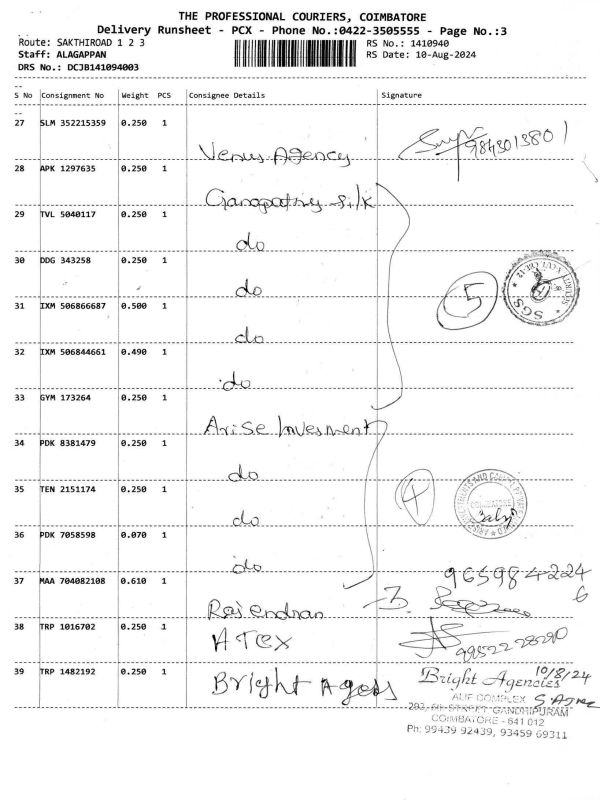 THE PROFESSIONAL COURIERS, COIMBATORE
Delivery Runsheet - PCX - Phone No.:0422-3505555 - Page No.:3
Route: SAKTHIROAD 1 2 3 RS No.: 1410940
Staff: ALAGAPPAN RS Date: 10-Aug-2024
DRS No.: DCJB141094003
S No Consignment No Weight PCS Consignee Details Signature
27 SLM 352215359 0.250 1 Venus Agency
28 APK 1297635 0.250 1 Ganapathy silk
29 TVL 5040117 0.250 1 do
30 DDG 343258 0.250 1 do
31 IXM 506866687 0.500 1 do 5 SGS
32 IXM 506844661 0.490 1 do
33 GYM 173264 0.250 1 Arise Invesment
34 PDK 8381479 0.250 1 do
35 TEN 2151174 0.250 1 do 4
36 PDK 7058598 0.070 1 do
37 MAA 704082108 0.610 1 Rajendran 965984224 6
38 TRP 1016702 0.250 1 ATEX
39 TRP 1482192 0.250 1 Bright Agens
10/8/24
Bright Agencies
ALIF COMPLEX
COIMBATORE - 641 012
Ph: 99439 92439, 93459 69311